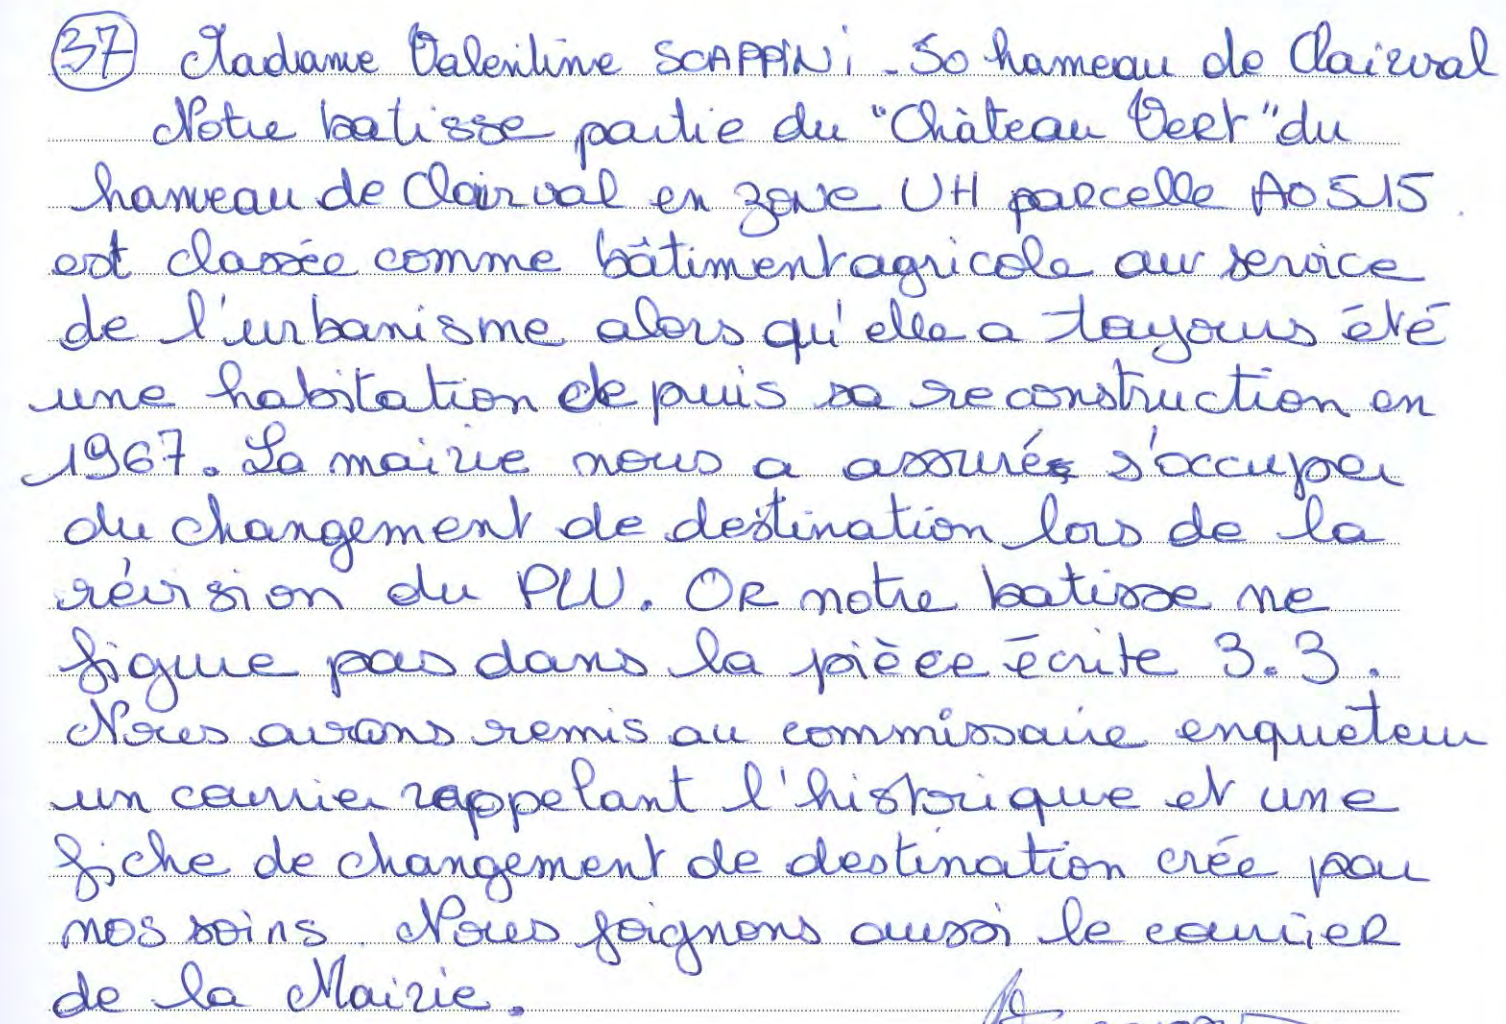 37 Madame Valentine SCAPPINi - 50 hameau de Clairval
Notre batisse partie du "Château Vert" du
hameau de Clairval en zone UH parcelle AO515
est classée comme bâtiment agricole au service
de l'urbanisme alors qu'elle a toujours été
une habitation depuis sa reconstruction en
1967. La mairie nous a assurés s'occuper
du changement de destination lors de la
révision du PLU. OR notre batisse ne
figure pas dans la pièce écrite 3.3.
Nous avons remis au commissaire enquêteur
un courrier rappelant l'historique et une
fiche de changement de destination crée par
nos soins. Nous joignons aussi le courrier
de la Mairie.